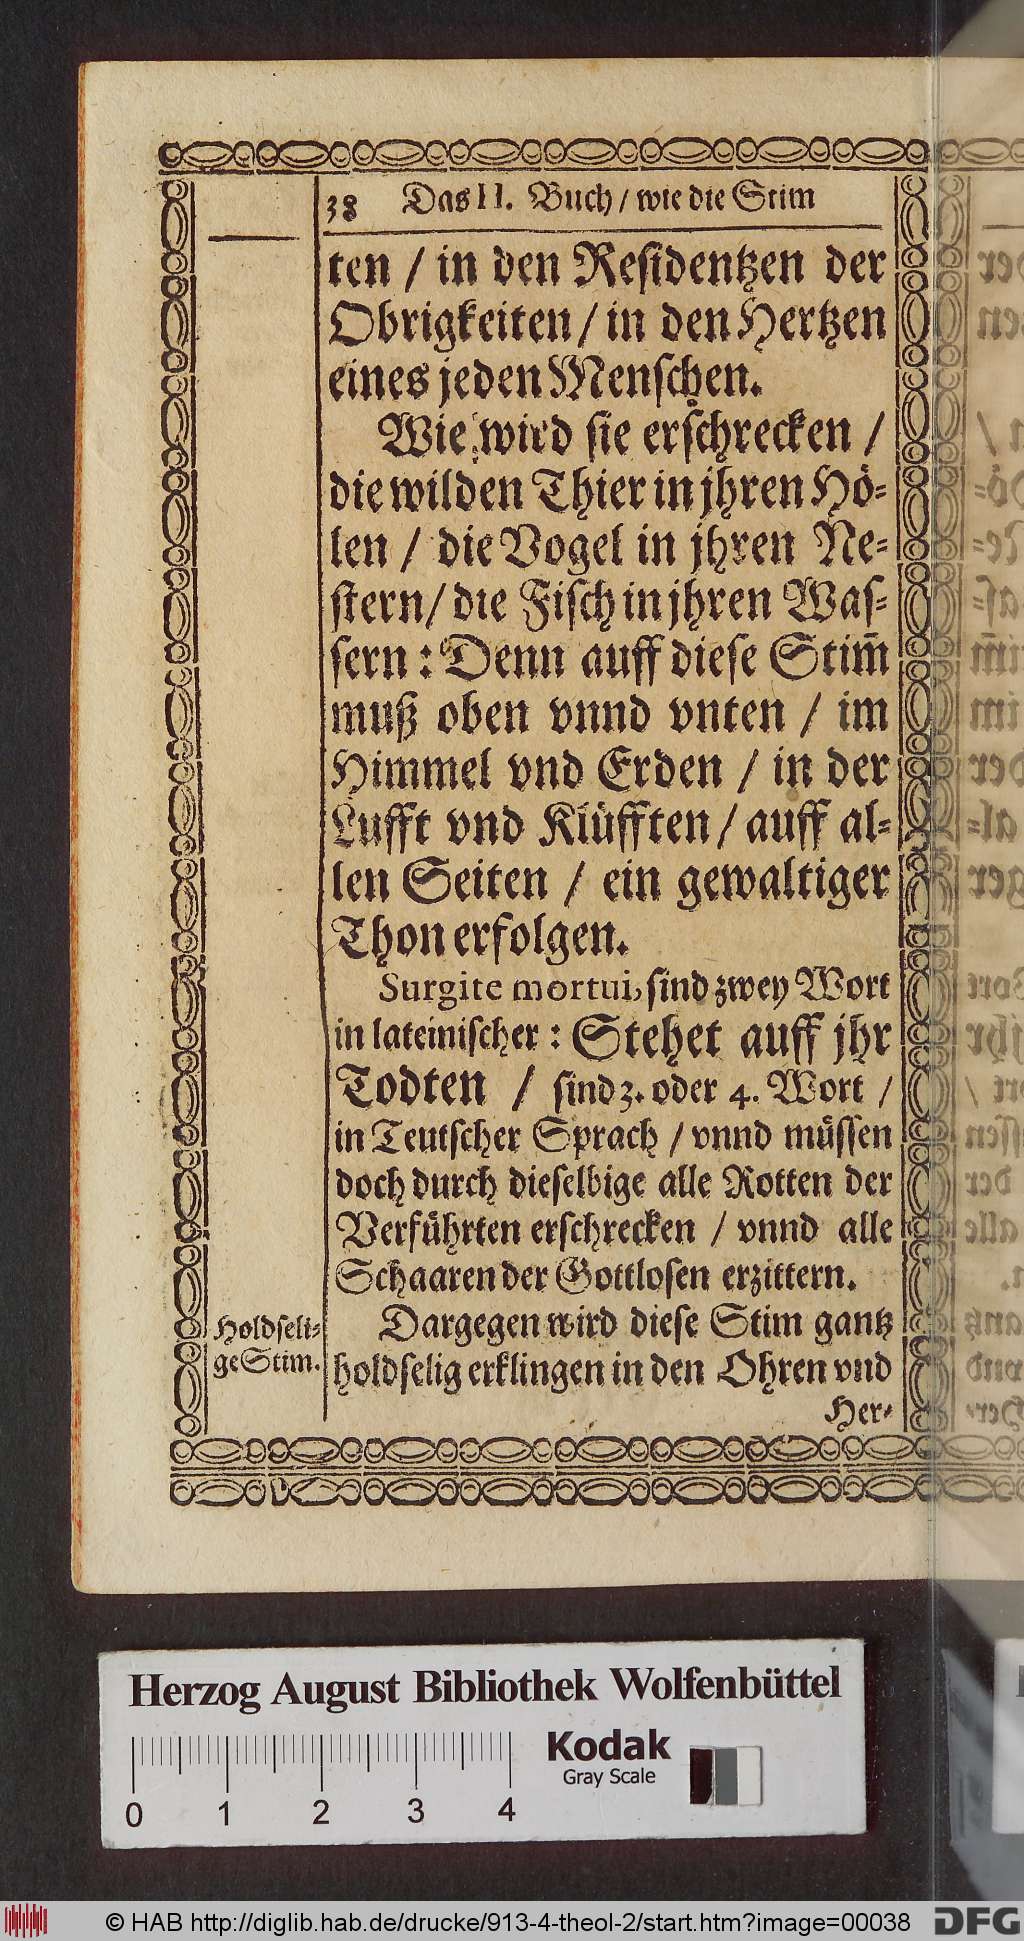 38 Das II. Buch / wie die Stim
ten / in den Residentzen der
Obrigkeiten / in den Hertzen
eines jeden Menschen.
Wie wird sie erschrecken /
die wilden Thier in jhren Hö-
len / die Vogel in jhren Ne-
stern / die Fisch in jhren Was-
sern : Denn auff diese Stim̄
muß oben vnnd vnten / im
Himmel vnd Erden / in der
Lufft vnd Klüfften / auff al-
len Seiten / ein gewaltiger
Thon erfolgen.
Surgite mortui, sind zwey Wort
in lateinischer : Stehet auff jhr
Todten / sind 3. oder 4. Wort /
in Teutscher Sprach / vnnd müssen
doch durch dieselbige alle Rotten der
Verführten erschrecken / vnnd alle
Schaaren der Gottlosen erzittern.
Holdseli-
ge Stim.
Dargegen wird diese Stim gantz
holdselig erklingen in den Ohren vnd
Her-
Herzog August Bibliothek Wolfenbüttel
Kodak
Gray Scale
0 1 2 3 4
© HAB http://diglib.hab.de/drucke/913-4-theol-2/start.htm?image=00038
DFG